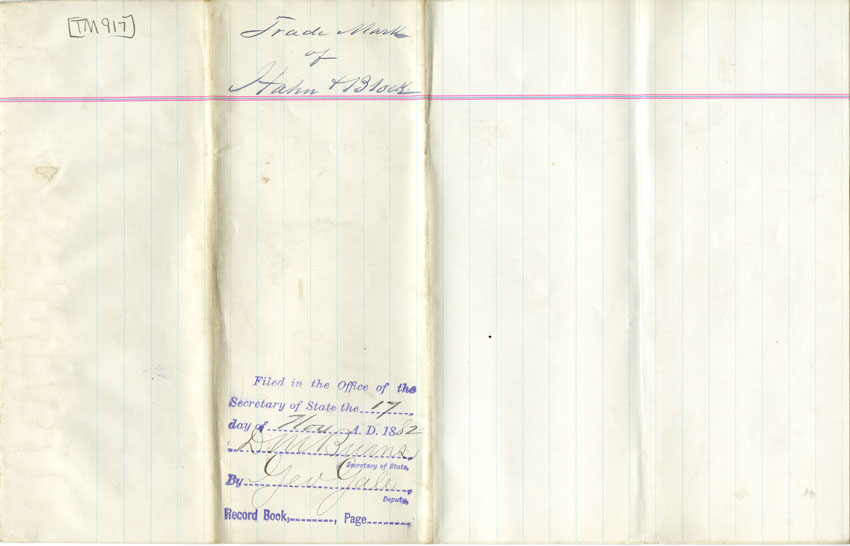 [TM 917]
Trade Mark
of
Hahn & Block
Filed in the Office of the
Secretary of State the 17
day of Nov A. D. 1882
D M Burns
Secretary of State,
By Geo Gale
Deputy,
Record Book, , Page